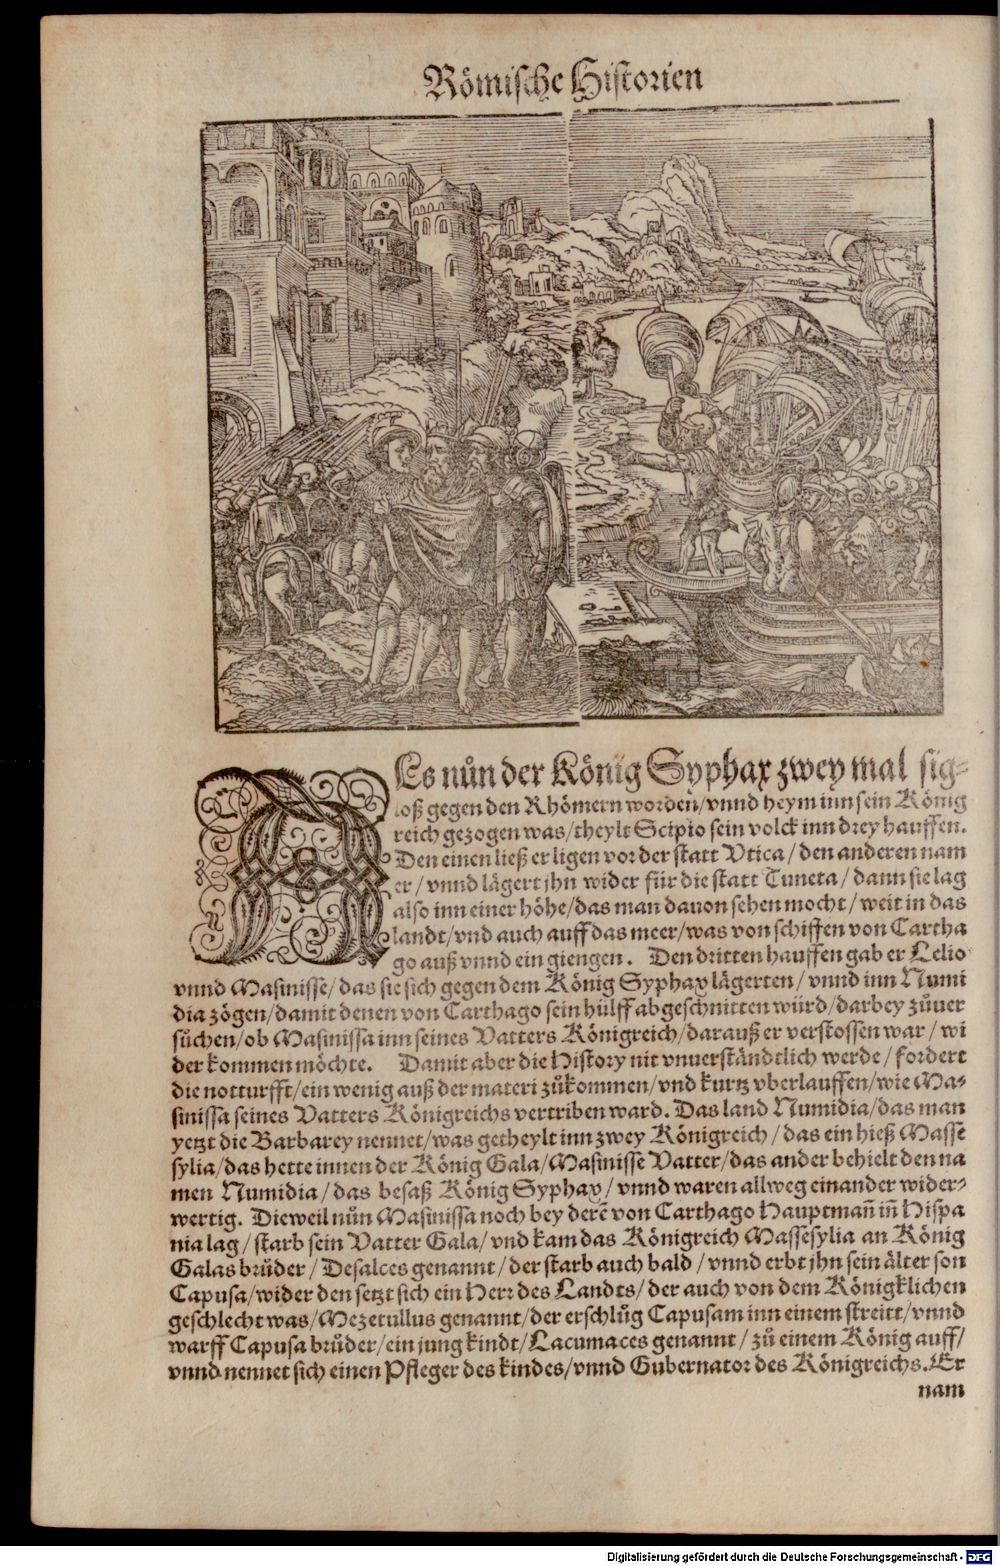 Römische Historien
ALs nůn der König Syphax zwey mal sig-
loß gegen den Rhömern worden/vnnd heym inn sein König
reich gezogen was/theylt Scipio sein volck inn drey hauffen.
Den einen ließ er ligen vor der statt Vtica/den anderen nam
er/vnnd lägert jhn wider für die statt Tuneta/dann sie lag
also inn einer höhe/das man dauon sehen mocht/weit in das
landt/vnd auch auff das meer/was von schiffen von Cartha
go auß vnnd ein giengen. Den dritten hauffen gab er Lelio
vnnd Masinisse/das sie sich gegen dem König Syphax lägerten/vnnd inn Numi
dia zögen/damit denen von Carthago sein hülff abgeschnitten würd/darbey zůuer
sůchen/ob Masinissa inn seines Vatters Königreich/darauß er verstossen war/wi
der kommen möchte. Damit aber die History nit vnuerständtlich werde/fordert
die notturfft/ein wenig auß der materi zůkommen/vnd kurtz vberlauffen/wie Ma-
sinissa seines Vatters Königreichs vertriben ward. Das land Numidia/das man
yetzt die Barbarey nennet/was getheylt inn zwey Königreich/das ein hieß Masse
sylia/das hette innen der König Gala/Masinisse Vatter/das ander behielt den na
men Numidia/das besaß König Syphax/vnnd waren allweg einander wider-
wertig. Dieweil nůn Masinissa noch bey derē von Carthago Hauptman̄ in̄ Hispa
nia lag/starb sein Vatter Gala/vnd kam das Königreich Massesylia an König
Galas brůder/Desalces genannt/der starb auch bald/vnnd erbt jhn sein älter son
Capusa/wider den setzt sich ein Herr des Landts/der auch von dem Königklichen
geschlecht was/Mezetullus genannt/der erschlůg Capusam inn einem streitt/vnnd
warff Capusa brůder/ein jung kindt/Lacumaces genannt/zů einem König auff/
vnnd nennet sich einen Pfleger des kindes/vnnd Gubernator des Königreichs. Er
nam
Digitalisierung gefördert durch die Deutsche Forschungsgemeinschaft - DFG